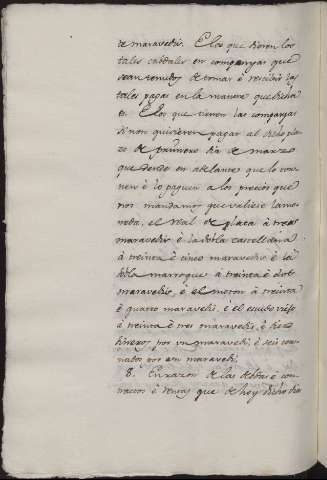 de maravedis. E los que dieron los
tales cabdales en companyas que
sean tenudos de tomar è rescibir los
tales pagas en la manera que dicha
es. E los que tienen las companyas
si non quisieren pagar al dicho pla-
zo de primero dia de marzo
que dende en adelante que lo tor-
nen è lo paguen a los precios que
nos mandamos que valiese la mo-
neda, el real de plata à tres
maravedis è la dobla castellana
à treinta è cinco maravedis è la
dobla marroqui à treinta è dos
maravedis è el moton à treinta
è quatro maravedis, è el escudo viejo
è treinta è tres maravedis, è diez
dineros por un maravedi, è seis cor-
nados por un maravedi.
8. En razon de las debdas è con-
tractos è ventas que de hoy dicho dia